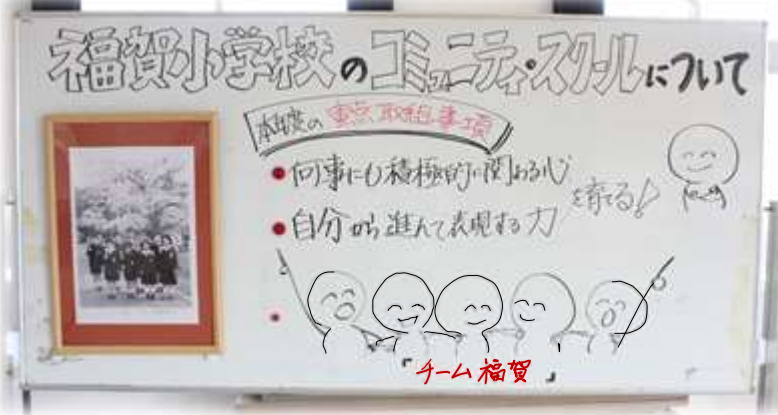 福賀小学校のコミュニティ・スクールについて
本年度の重点取組事項
●何事にも積極的に関わる心
●自分から進んで表現する力
を育てる!
「チーム福賀」